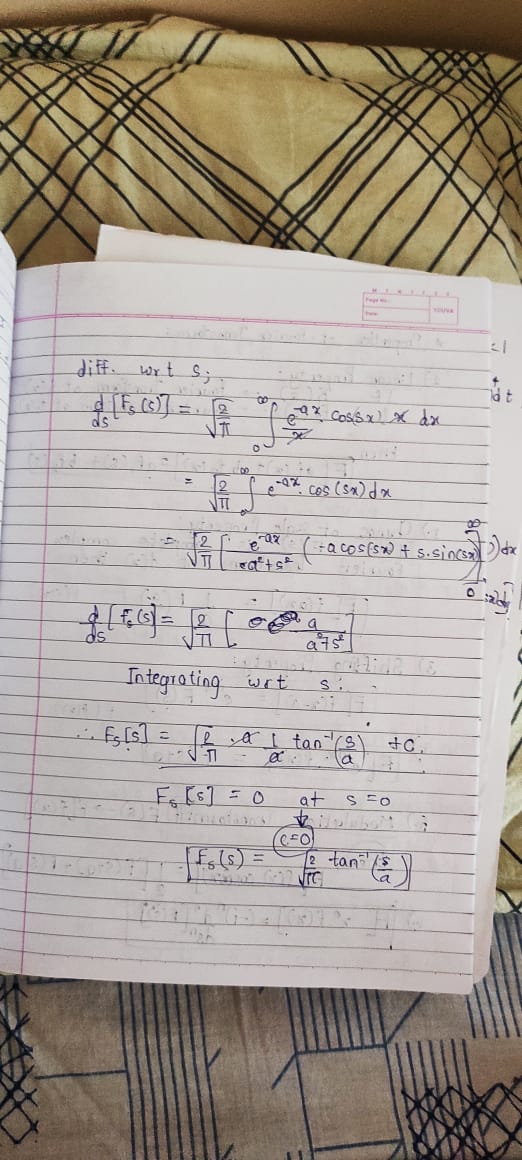 Page No.:
Date:
YOUVA
diff. wrt s;
d/ds [Fs(s)] = √(2/π) ∫₀^∞ e^-ax/x cos(sx) x dx
= √(2/π) ∫₀^∞ e^-ax . cos(sx) dx
= √(2/π) [ e^-ax / a²+s² ( -a cos(sx) + s. sin(sx) ) ]₀^∞ dx
d/ds [Fs(s)] = √(2/π) [ a / a²+s² ]
Integrating wrt s:
∴ Fs[s] = √(2/π) . a 1/a tan⁻¹(s/a) + C.
Fs[s] = 0 at s = 0
↓
C=0
[Fs(s) = √(2/π) tan⁻¹(s/a)]
=1
dt